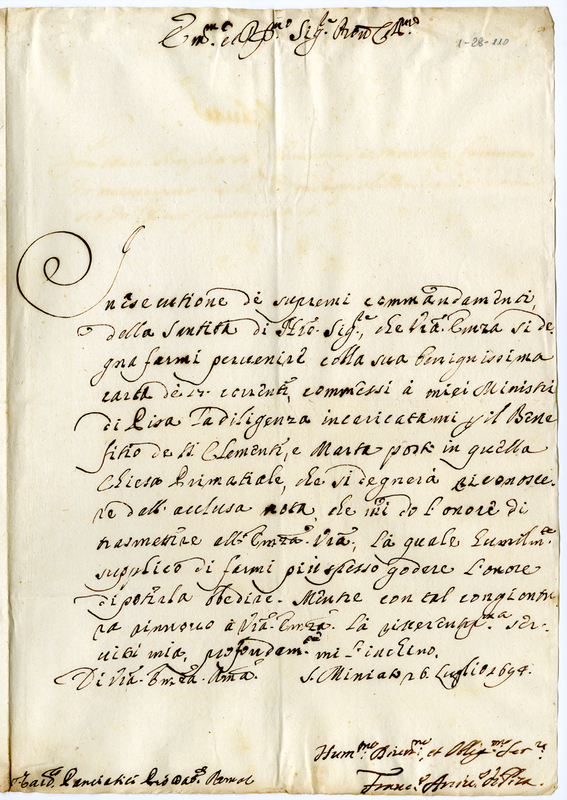 Em.mo e R.mo Sig.r Pron Col.mo
1-28-110
In esecutione de supremi commandamenti
della Santità di Nro. Sig.re, che V.ra Emza si de
gna farmi pervenire colla sua benignissima
carta de 17 correnti, commessi à miei Ministri
di Pisa la diligenza incaricatami p il Bene
fitio de SS Clemente, e Marta posti in quella
Chiesa Primatiale, che si degnerà riconosce
re dall' acclusa nota, che mi do l'onore di
trasmettere all' Emza. Vra., la quale humilm.te
supplico di farmi più spesso godere l'onore
di poterla obedire. Mentre con tal congiontu
ra rinnovo à Vra. Emza. la riverentma. ser
vitù mia, profondam.te mi l'inchino.
Di Vra. Emza. Rma. S. Miniato 26 Luglio 1694.
Hum.mo Divm.mo, et Oblig.mo Ser.re
Card. Panciatici Prodat. Roma
Franc.